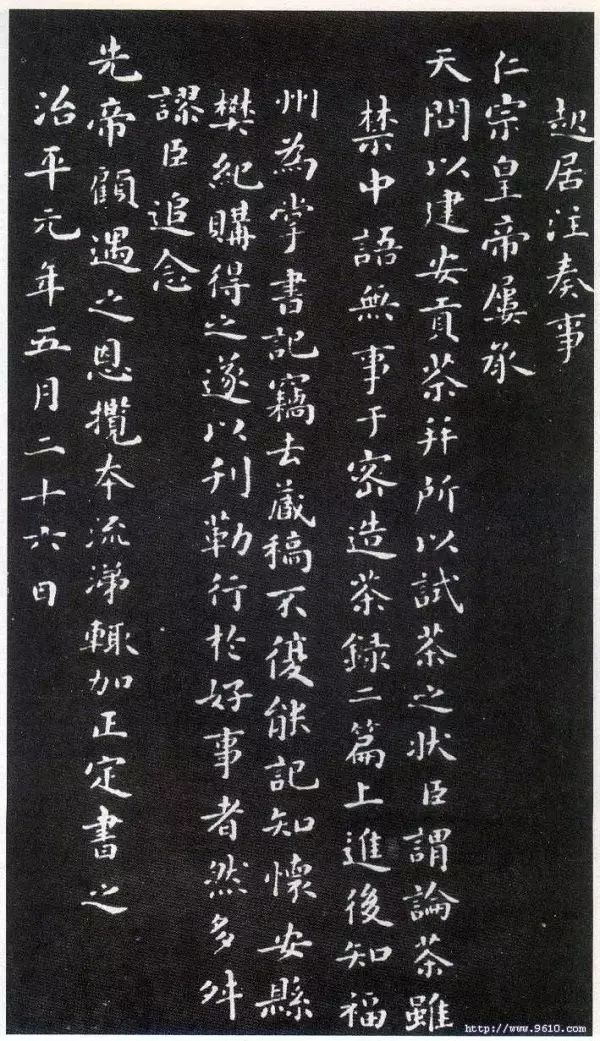 起居注奏事
仁宗皇帝屢承
天問以建安貢茶并所以試茶之狀臣謂論茶雖
禁中語無事于密造茶録二篇上進後知福
州為掌書記竊去藏稿不復能記知懷安縣
樊紀購得之遂以刊勒行於好事者然多舛
謬臣追念
先帝顧遇之恩攬本流涕輒加正定書之
治平元年五月二十六日
http://www.9610.com